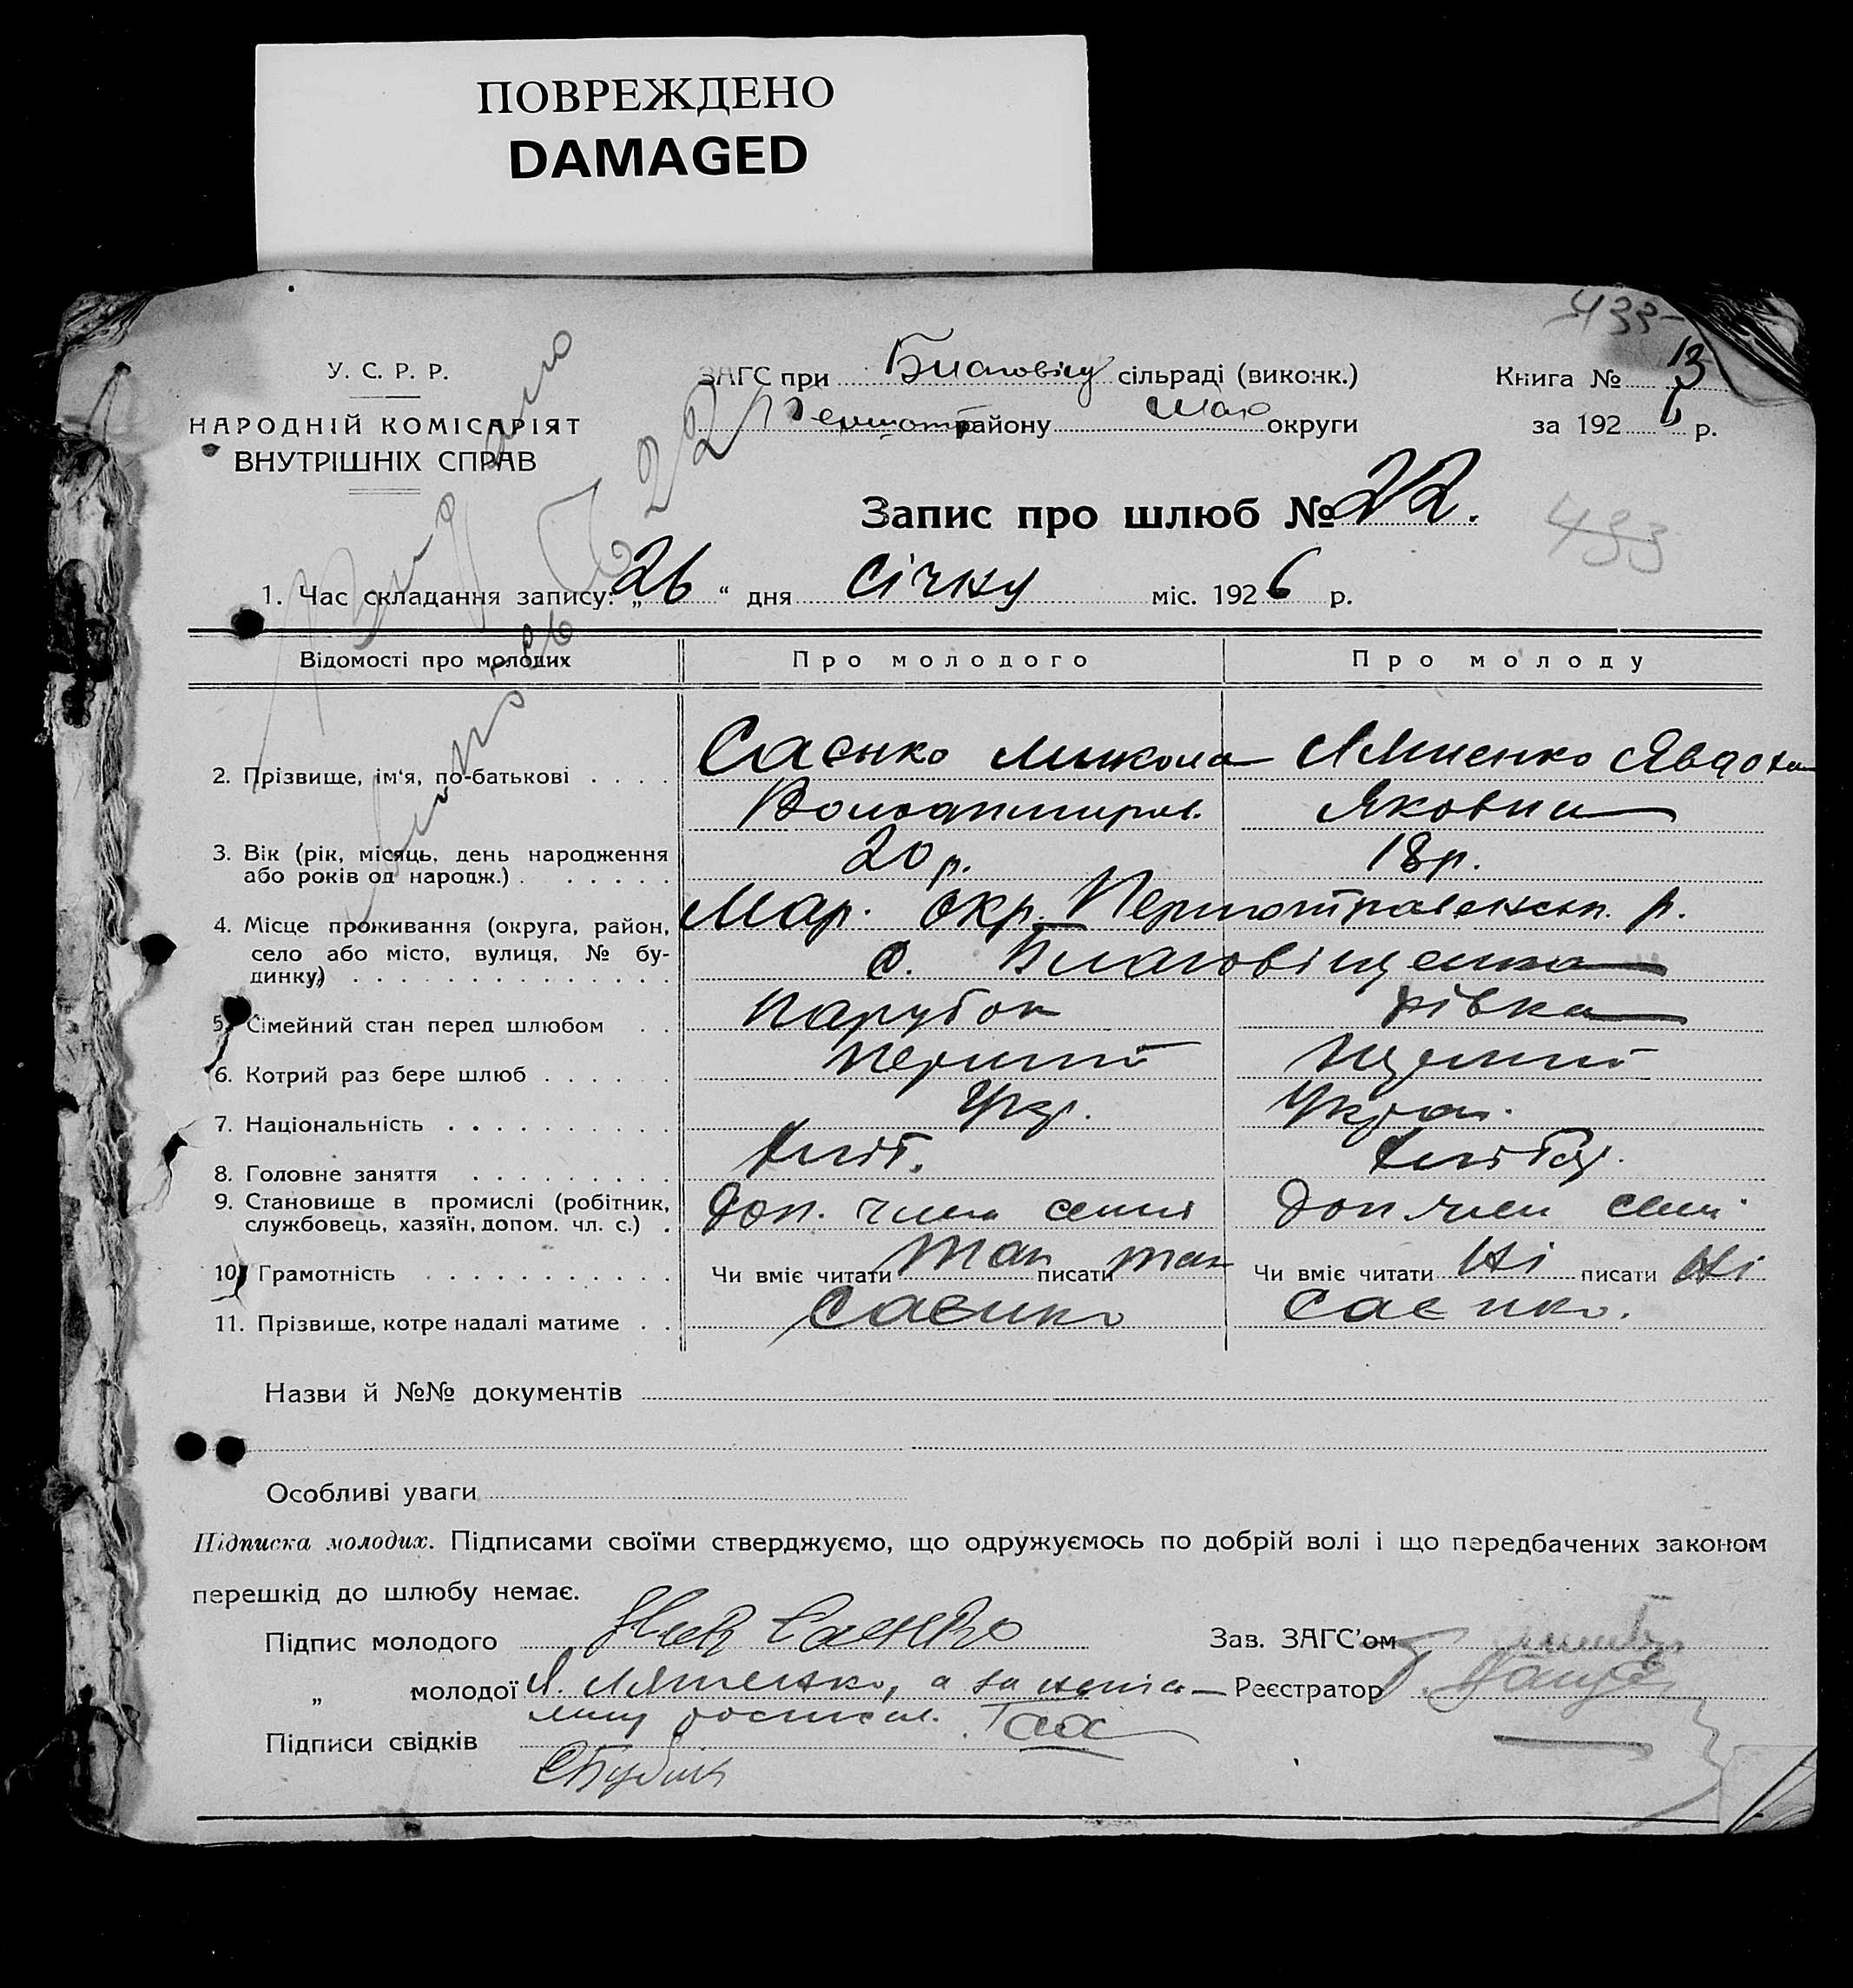 ПОВРЕЖДЕНО
DAMAGED
433
У. С. Р. Р.
НАРОДНІЙ КОМІСАРІЯТ
ВНУТРІШНІХ СПРАВ
ЗАГС при Благовіщ сільраді (виконк.)
району Мар округи
Книга № 13
за 1926 р.
Запис про шлюб № 22.
433
1. Час складання запису: „26“ дня Січню міс. 1926 р.
Відомості про молодих Про молодого Про молоду
2. Прізвище, ім'я, по-батькові . . . . Саєнко Микола Ляшенко Явдоха
Володимиров. Яковна
3. Вік (рік, місяць, день народження
або років од народж.) . . . . . . 20 р. 18 р.
4. Місце проживання (округа, район, Мар. Окр. Першотравенськ. р.
село або місто, вулиця, № бу-
динку) . . . . . . . . . . . . . . с. Благовіщенка
5. Сімейний стан перед шлюбом . . Парубок дівка
6. Котрий раз бере шлюб . . . . . . Перший Перший
7. Національність . . . . . . . . . . Укр. Украї.
8. Головне заняття . . . . . . . . . Хліб. Хлібор.
9. Становище в промислі (робітник,
службовець, хазяїн, допом. чл. с.) . Доп. член сем'ї Доп член сем'ї
10. Грамотність . . . . . . . . . . . Чи вміє читати так писати так Чи вміє читати Ні писати Ні
11. Прізвище, котре надалі матиме . . Саєнко Саєнко.
Назви й №№ документів
Особливі уваги
Підписка молодих. Підписами своїми стверджуємо, що одружуємось по добрій волі і що передбачених законом
перешкід до шлюбу немає.
Підпис молодого Ник Саенко Зав. ЗАГС'ом
„ молодої Я. Ляшенко, а за негра- Реєстратор
мотну росписал.
Підписи свідків